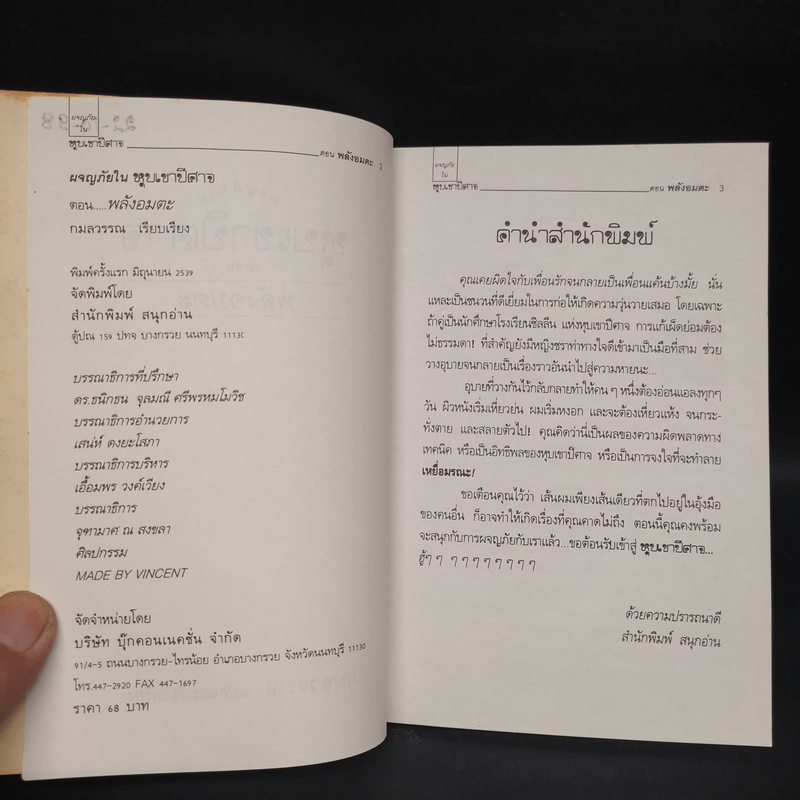 ผจญภัย
ใน
หุบเขาปีศาจ
ตอน พลังอมตะ 2
ผจญภัยใน หุบเขาปีศาจ
ตอน.....พลังอมตะ
กมลวรรณ เรียบเรียง
พิมพ์ครั้งแรก มิถุนายน 2539
จัดพิมพ์โดย
สำนักพิมพ์ สนุกอ่าน
ตู้ปณ 159 ปทจ บางกรวย นนทบุรี 11130
บรรณาธิการที่ปรึกษา
ดร.ธนิกธน จุลมณี ศรีพรหมโมวิช
บรรณาธิการอำนวยการ
เสน่ห์ ดงยะโสภา
บรรณาธิการบริหาร
เอื้อมพร วงค์เวียง
บรรณาธิการ
จุฑามาศ ณ สงขลา
ศิลปกรรม
MADE BY VINCENT
จัดจำหน่ายโดย
บริษัท บุ๊กคอนเนคชั่น จำกัด
91/4-5 ถนนบางกรวย-ไทรน้อย อำเภอบางกรวย จังหวัดนนทบุรี 11130
โทร.447-2920 FAX 447-1697
ราคา 68 บาท
ผจญภัย
ใน
หุบเขาปีศาจ
ตอน พลังอมตะ 3
คำนำสำนักพิมพ์
คุณเคยผิดใจกับเพื่อนรักจนกลายเป็นเพื่อนแค้นบ้างมั้ย นั่น
แหละเป็นชนวนที่ดีเยี่ยมในการก่อให้เกิดความวุ่นวายเสมอ โดยเฉพาะ
ถ้าคู่เป็นนักศึกษาโรงเรียนซิลลีน แห่งหุบเขาปีศาจ การแก้เผ็ดย่อมต้อง
ไม่ธรรมดา! ที่สำคัญยังมีหญิงชราท่าทางใจดีเข้ามาเป็นมือที่สาม ช่วย
วางอุบายจนกลายเป็นเรื่องราวอันนำไปสู่ความหายนะ...
อุบายที่วางกันไว้กลับกลายทำให้คน ๆ หนึ่งต้องอ่อนแอลงทุกๆ
วัน ผิวหนังเริ่มเหี่ยวย่น ผมเริ่มหงอก และจะต้องเหี่ยวแห้ง จนกระ-
ทั่งตาย และสลายตัวไป! คุณคิดว่านี่เป็นผลของความผิดพลาดทาง
เทคนิค หรือเป็นอิทธิพลของหุบเขาปีศาจ หรือเป็นการจงใจที่จะทำลาย
เหยื่อมรณะ!
ขอเตือนคุณไว้ว่า เส้นผมเพียงเส้นเดียวที่ตกไปอยู่ในอุ้งมือ
ของคนอื่น ก็อาจทำให้เกิดเรื่องที่คุณคาดไม่ถึง ตอนนี้คุณคงพร้อม
จะสนุกกับการผจญภัยกับเราแล้ว...ขอต้อนรับเข้าสู่ หุบเขาปีศาจ...
ฮู้ๆ ๆ ๆ ๆ ๆ ๆ ๆ ๆ ๆ
ด้วยความปรารถนาดี
สำนักพิมพ์ สนุกอ่าน